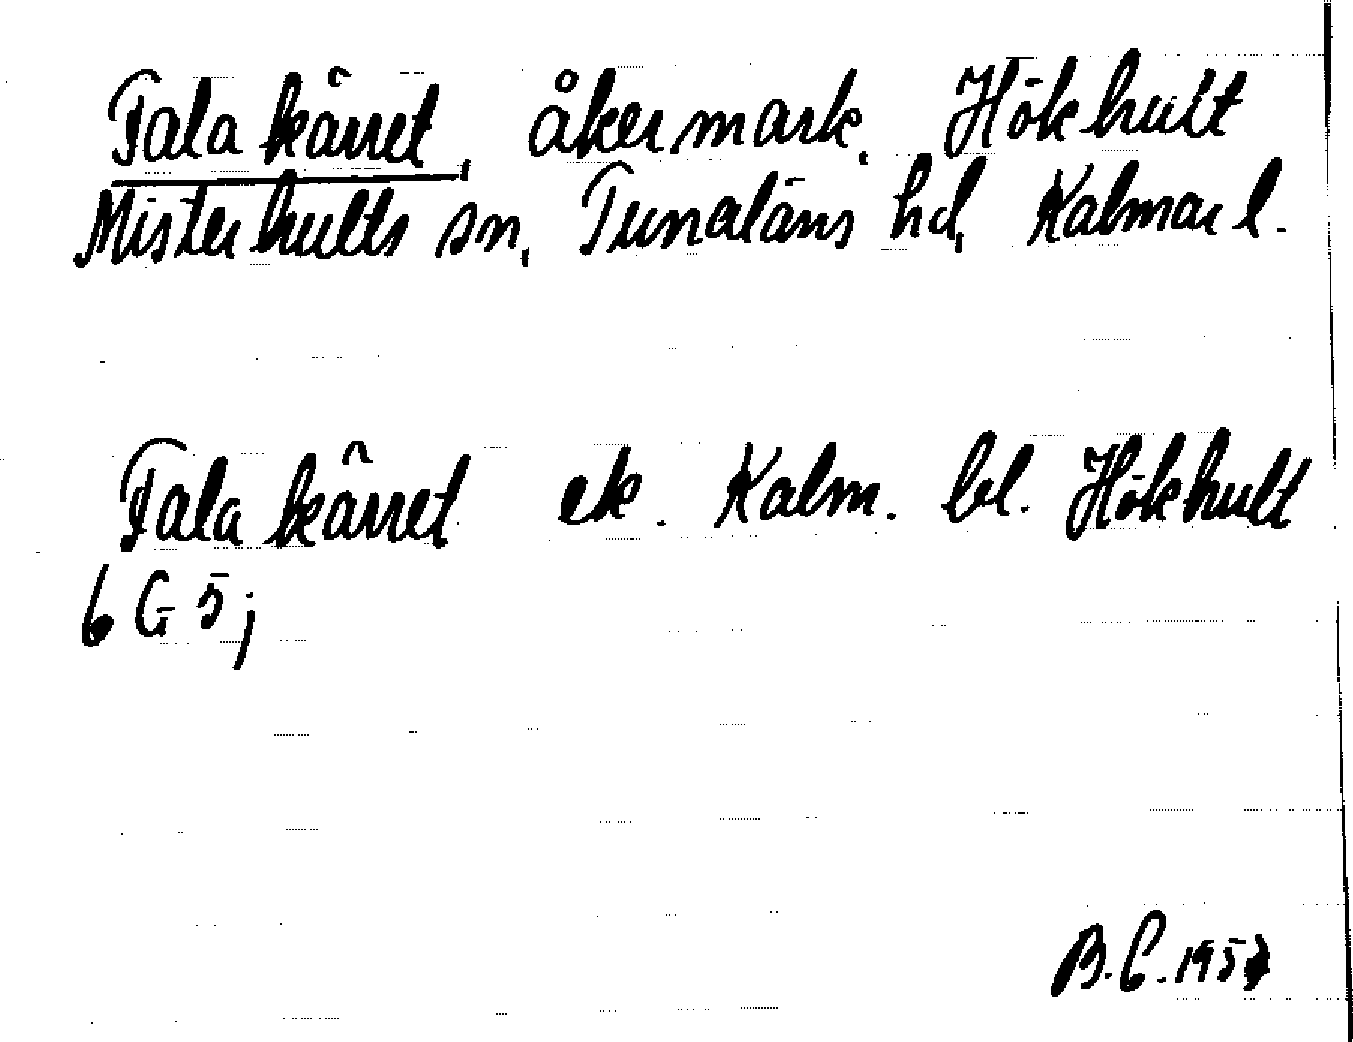 Talakärret, åkermark, Hökhult
Misterhults sn, Tunaläns hd, Kalmar l.
Talakärret ek. Kalm. bl. Hökhult
6 G 5;
B.C. 1957